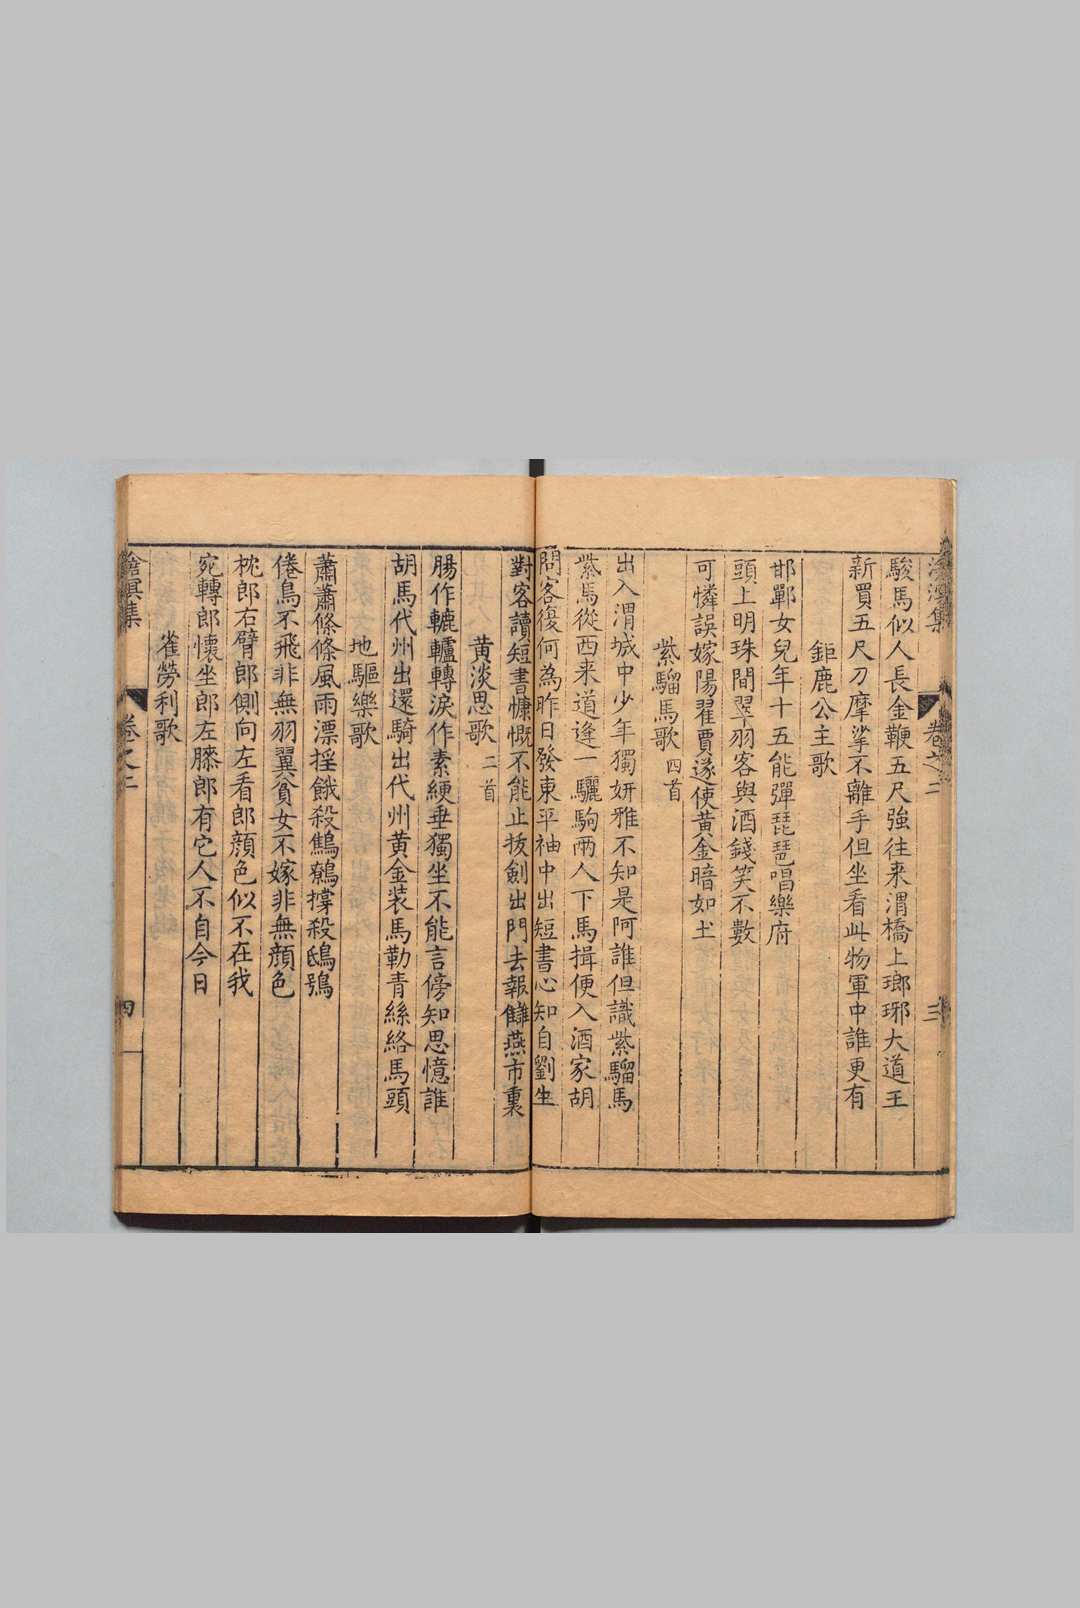 滄溟集 卷之二 三
駿馬似人長金鞭五尺強往来渭橋上瑯琊大道王
新買五尺刀摩挲不離手但坐看此物軍中誰更有
鉅鹿公主歌
邯鄲女兒年十五能彈琵琶唱樂府
頭上明珠間翠羽客與酒錢笑不數
可憐誤嫁陽翟賈遂使黃金暗如土
紫騮馬歌四首
出入渭城中少年獨妍雅不知是阿誰但識紫騮馬
紫馬從西来道逢一驪駒兩人下馬揖便入酒家胡
問客復何為昨日發東平袖中出短書心知自劉生
對客讀短書慷慨不能止拔劍出門去報讎燕市裏
黄淡思歌二首
腸作轆轤轉淚作素綆垂獨坐不能言傍知思憶誰
胡馬代州出還騎出代州黄金装馬勒青絲絡馬頭
地驅樂歌
蕭蕭條條風雨漂揺餓殺鷦鷯撑殺鴟鴞
倦鳥不飛非無羽翼貧女不嫁非無顔色
枕郎右臂郎側向左看郎顔色似不在我
宛轉郎懷坐郎左膝郎有它人不自今日
雀勞利歌
滄溟集 卷之二 四